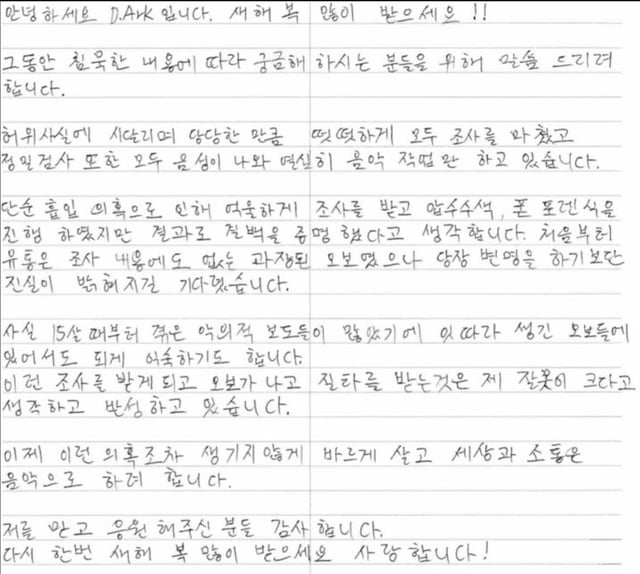 안녕하세요 D.Ark 입니다. 새해 복 많이 받으세요!!
그동안 침묵한 내용에 따라 궁금해 하시는 분들을 위해 말씀 드리려
합니다.
허위사실에 시달리며 당당한 만큼 떳떳하게 모두 조사를 마쳤고
정밀검사 또한 모두 음성이 나와 열심히 음악 작업만 하고 있습니다.
단순 흡입 의혹으로 인해 억울하게 조사를 받고 압수수색, 폰 포렌식을
진행 하였지만 결과로 결백을 증명했다고 생각합니다. 처음부터
유통은 조사 내용에도 없는 과장된 오보였으나 당장 변명을 하기보단
진실이 밝혀지길 기다렸습니다.
사실 15살 때부터 겪은 악의적 보도들이 많았기에 잇따라 생긴 오보들에
있어서도 되게 익숙하기도 합니다.
이런 조사를 받게되고 오보가 나고 질타를 받는것은 제 잘못이 크다고
생각하고 반성하고 있습니다.
이제 이런 의혹조차 생기지않게 바르게 살고 세상과 소통은
음악으로 하려 합니다.
저를 믿고 응원해주신 분들 감사합니다.
다시 한번 새해 복 많이 받으세요 사랑합니다!